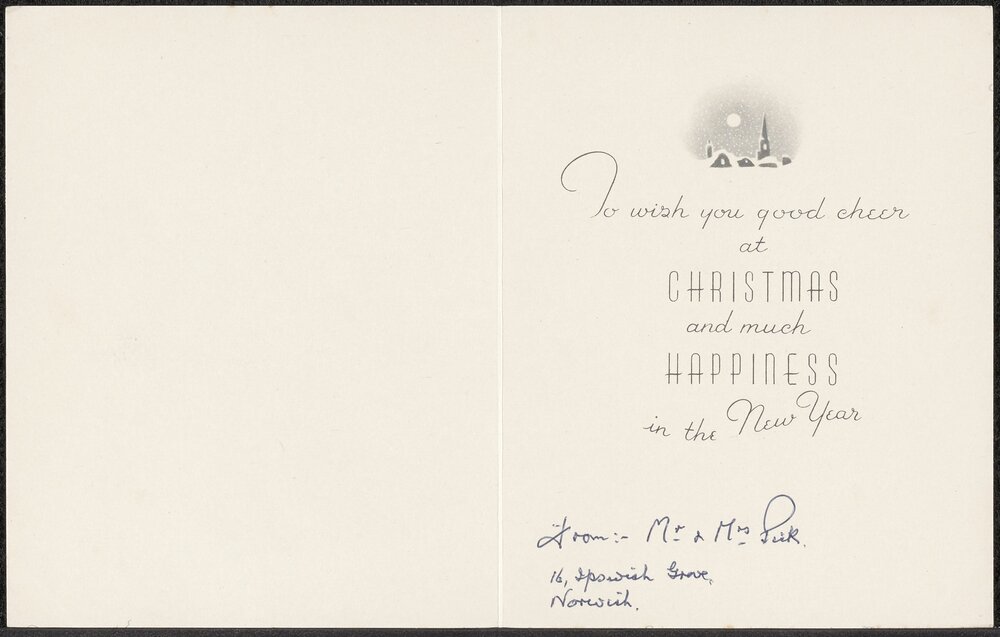 To wish you good cheer
at
CHRISTMAS
and much
HAPPINESS
in the New Year
From:- Mr & Mrs Pick.
16, Ipswich Grove,
Norwich.